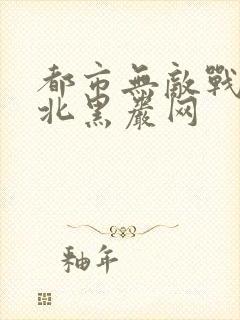 都市無敵戰
北黑嚴网
釉年